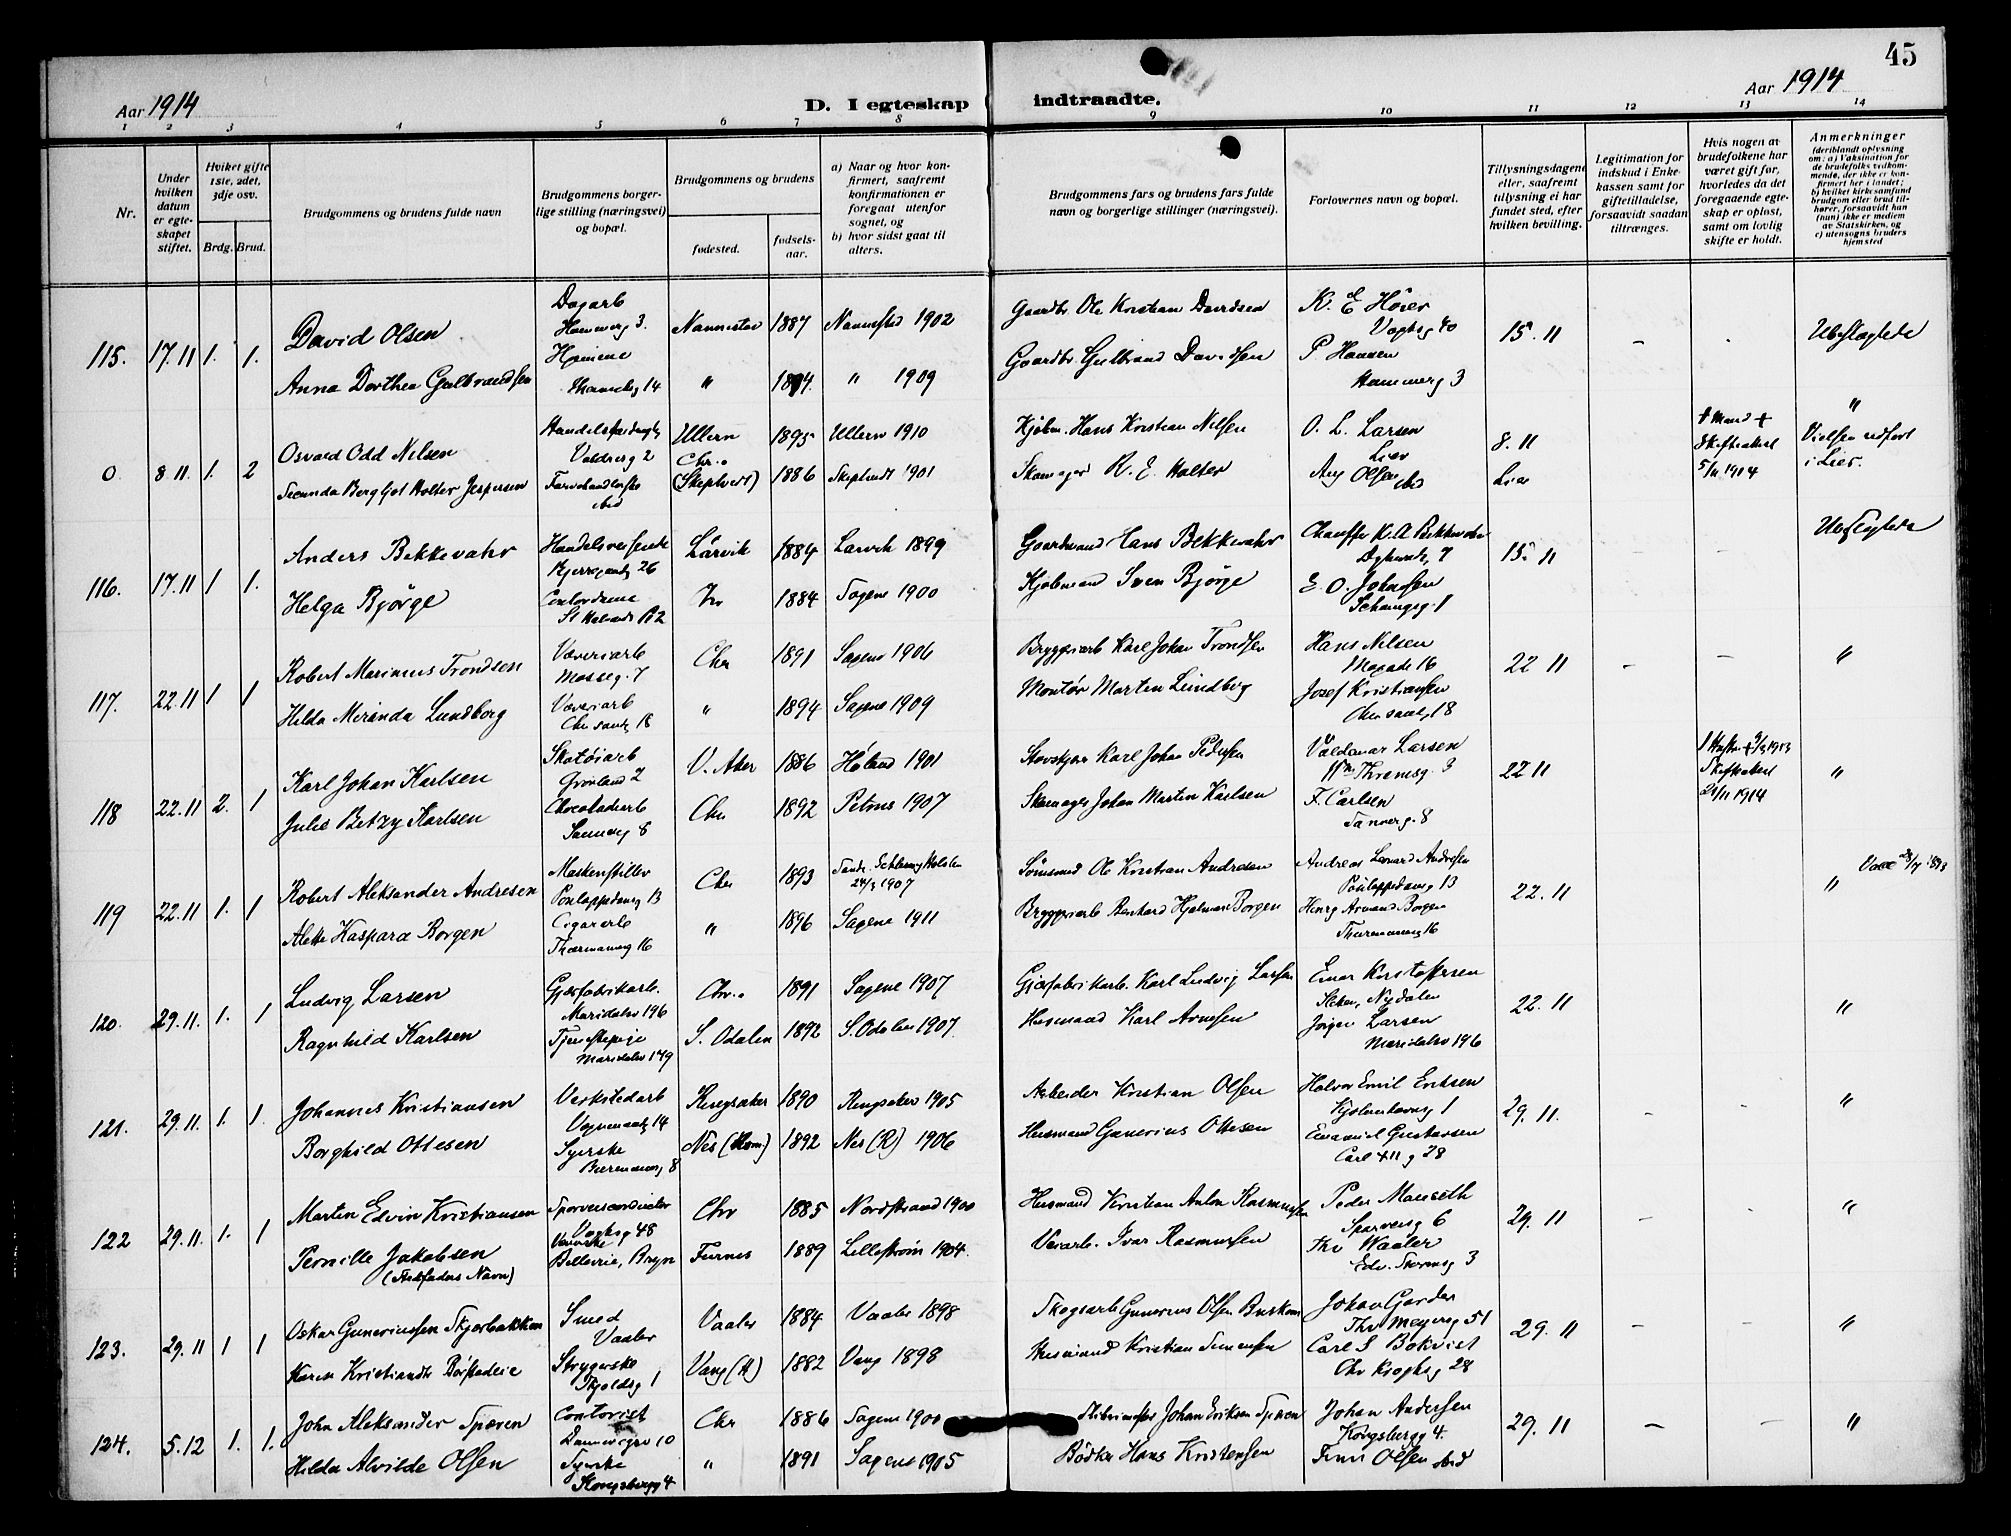 45
Aar 1914
D. I egteskap indtraadte.
Aar 1914
1 2 3 4 5 6 7 8 9 10 11 12 13 14
Nr.
Under hvilken datum er egteskapet stiftet.
Hvilket gifte 1ste, 2det, 3dje osv.
Brdg. Brud.
Brudgommens og brudens fulde navn
Brudgommens borgerlige stilling (næringsvei) og bopæl.
Brudgommens og brudens
fødested. fødselsaar.
a) Naar og hvor konfirmert, saafremt konfirmationen er foregaat utenfor sognet, og
b) hvor sidst gaat til alters.
Brudgommens fars og brudens fars fulde navn og borgerlige stillinger (næringsvei).
Forlovernes navn og bopæl.
Tillysningsdagene eller, saafremt tillysning ei har fundet sted, efter hvilken bevilling.
Legitimation for indskud i Enkekassen samt for giftetilladelse, forsaavidt saadan tiltrænges.
Hvis nogen av brudefolkene har været gift før, hvorledes da det foregaaende egteskap er opløst, samt om lovlig skifte er holdt.
Anmerkninger (deriblandt oplysning om: a) Vaksination for de brudefolks vedkommende, der ikke er konfirmert her i landet; b) hvilket kirkesamfund brudgom eller brud tilhører, forsaavidt han (hun) ikke er medlem av Statskirken, og c) utensogns bruders hjemsted
115. 17.11 1. 1. David Olsen Dagarb Hammerg 3. Nannestad 1887 Nannestad 1902 Gaardbr. Ole Kristian Davidsen K. E Höier Vogtsg 40 15. 11 - Ubeslegtede
Anna Dorthea Gulbrandsen Hjemme 14 " " 1909 Gaardbr. Gulbrand Davidsen P Hansen Hammerg 3
0 8 11. 1. 2 Osvald Odd Nilsen Valdresg 2 Ullern 1895 Ullern 1910 Kjøbm. Hans Kristian Nilsen O. L. Larsen Lier 8. 11 Lier 5/11 1914 " Vielsen udført i Lier.
Secunda Bergljot Holter Jespersen ibid Chr.a (Skiptvedt) 1886 Skiptvedt 1901 Skomager K. E. Holter Aug Olsen ibid
116. 17.11 1 1. Anders Bekkevahr Handelsreisende 26 Larvik 1884 Larvik 1899 Gaardmand Hans Bekkevahr Chauffør K. A Bekkevahr 7 15. 11 - Ubeslegtede
Helga Bjørge Contordame Chr 1884 Sagene 1900 Kjøbmand Sven Bjørge E. O. Johnsen Schwingsg. 1
117. 22.11 1 1 Robert Marinius Trondsen Væveriarb Mosseg. 7 Chr 1891 Sagene 1906 Bryggeriarb Karl Johan Trondsen Hans Nilsen 16 22 11 - - "
Hilda Miranda Lundborg Væveriarb 18 " 1894 Sagene 1909 Montør Morten Lundborg Josef Kristiansen 18
118 22.11 2. 1 Karl Johan Karlsen Skotøiarb Grønland 2 V. Aker 1886 Høland 1901 Karl Johan Pedersen Valdemar Larsen Wm Thranesg. 3 22 11 1913 Skifteattest 21/11 1914 "
Julie Betzy Karlsen Chocoladearb Sannerg 8 Chr 1892 Petrus 1907 Skomager Johan Martin Karlsen F. Carlsen Sannerg. 8
119 22.11 1. 1 Robert Aleksander Andresen 13 Chr 1893 Schleswig Holsten 24/3 1907 Sømand Ole Kristian Andresen Andreas Leonard Andresen 13 22. 11 "
Alette Kaspara Borgen Cigararb 16 " 1896 Sagene 1911 Bryggeriarb Hjalmar Borgen Henry Borgen 16
120. 29.11. 1. 1 Ludvig Larsen Gjærfabrikarb. Maridalsv 196 Chr.a 1891 Sagene 1907 Gjærfabrikarb. Karl Ludvig Larsen Einar Kristoffersen Nydalen 22. 11 "
Ragnhild Karlsen Tjenestepige Maridalsv 149 S. Odalen 1892 S. Odalen 1907. Husmand Karl Arnesen Jørgen Larsen Maridalsv 196
121. 29.11. 1. 1. Johannes Kristiansen Verkstedarb 14 Ringsaker 1890 Ringsaker 1905 Arbeider Kristian Olsen Halvor Emil Eriksen 1 29. 11. - - "
Borghild Ottesen Syerske 8 Nes (Hedm) 1892 Nes (R) 1906 Husmand Gunerius Ottesen Emanuel Gustavsen Carl XII g 28
122 29.11. 1. 1 Martin Edvin Kristiansen Sporveisconductør Vogtsg 48 Chr 1885 Nordstrand 1900 Husmand Kristian Anton Rasmussen Peder Mauseth Sparveisg 6 29. 11 - - "
Pernille Jakobsen (Stedfaders Navn) Bellevue, Bryn Furnes 1889 Lillestrøm 1904. Veiarb. Ivar Rasmussen Thv Waaler Edv. Stormsg 3
123. 29.11 1 1 Oskar Gunerussen Skjerbakken Smed Vaaler Vaaler 1884 Vaaler 1898 Skogsarb Gunerius Olsen Johan Gorder Thv Meyersg 51 29. 11 - - "
Karen Kristiansdt Strygerske Skjoldsg 1 Vang (H) 1882 Vang 1898 Husmand Kristian Simensen Carl S Bökvist Chr Kroghsg 28
124. 5.12 1. 1. John Aleksander Spæren Contorist 10 Chr 1886 Sagene 1900 Johan Eriksen Spæren Johan Andersen Kongsbergg 4. 29. 11 - - "
Hilda Alvilde Olsen Syerske Kongsbergg 4 " 1891 Sagene 1905 Bødker Hans Kristensen Finn Olsen ibid